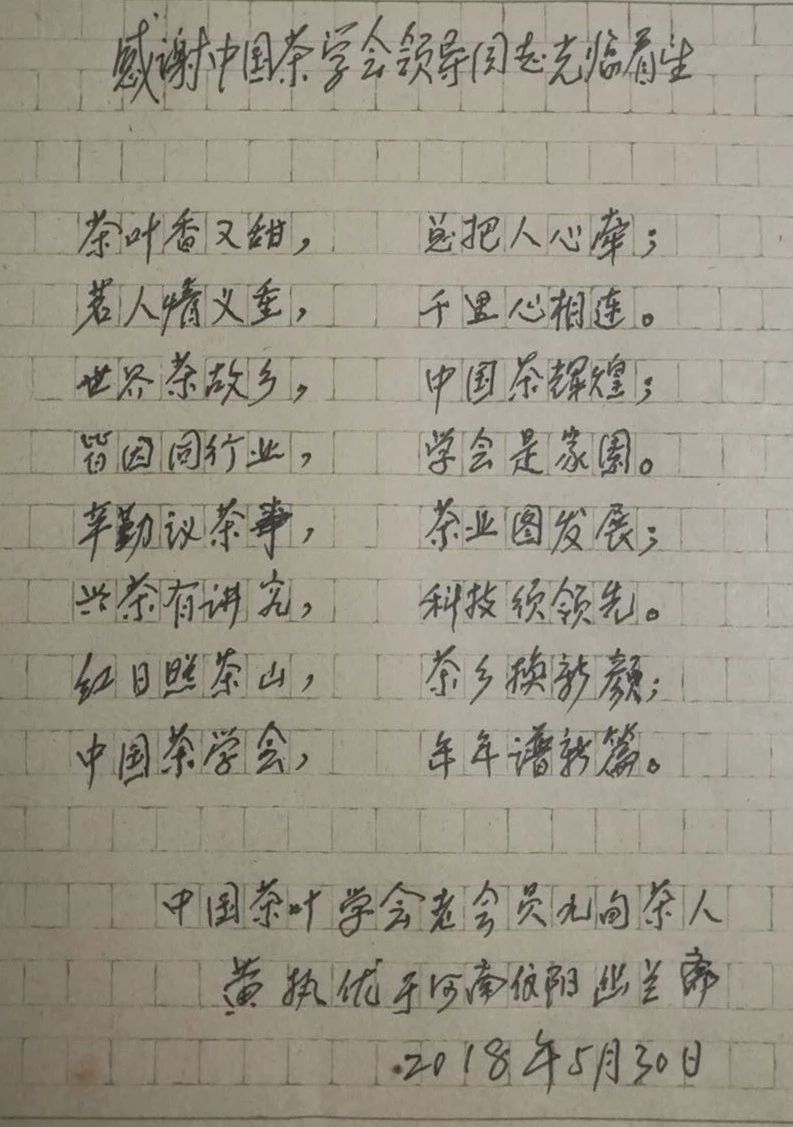 感谢中国茶学会领导同志光临寿生
茶叶香又甜， 总把人心牵；
茗人情义重， 千里心相连。
世界茶故乡， 中国茶辉煌；
皆因同行业， 学会是家园。
辛勤议茶事， 茶业图发展；
兴茶有讲究， 科技须领先。
红日照茶山， 茶乡换新颜；
中国茶学会， 年年谱新篇。
中国茶叶学会老会员九旬茶人
黄执优于河南信阳幽兰斋
2018年5月30日